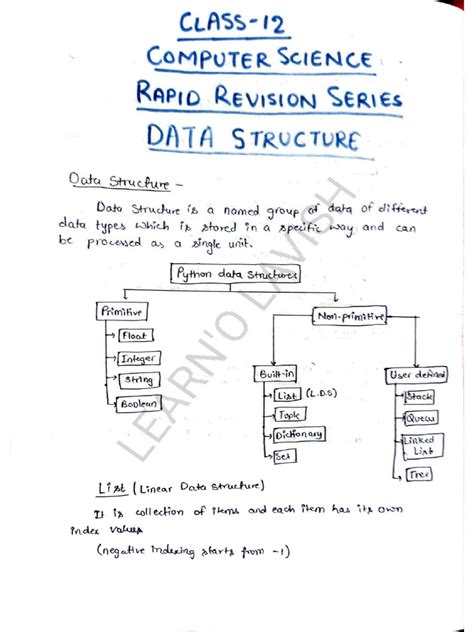 CLASS-12
COMPUTER SCIENCE
RAPID REVISION SERIES
DATA STRUCTURE
Data Structure -
Data Structure is a named group of data of different
data types which is stored in a specific way and can
be processed as a single unit.
Python data Structures
Primitive
Non-primitive
Float
Integer
String
Boolean
Built-in
List (L.D.S)
Tuple
Dictionary
Set
User defined
Stack
Queue
Linked
List
Tree
List (Linear Data Structure)
It is collection of items and each item has its own
index values
(negative indexing starts from -1)
LEARN'O LAVISH